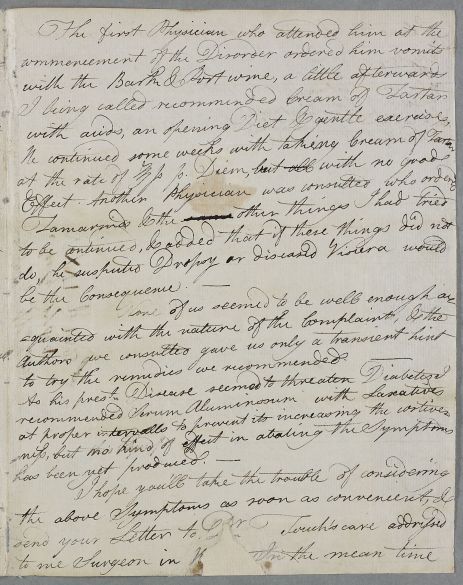 The first Physician who attended him at the
commencement of the Disorder ordered him vomits
with the Bark & Port wine, a little afterwards
I being called recommended Cream of Tartar
with acids, an opening Diet & gentle exercises,
He continued some weeks with taking Cream of Tartar
at the rate of p. Diem, but all with no good
Effect. Another Physician was consulted, who orderd
Tamarinds & the other things I had tried
to be continued, & added that if these things did not
do, he suspected Dropsy or diseased Viscera would
be the Consequence. —
one of us seemed to be well enough ac
=quainted with the nature of the Complaint, & the
Authors we consulted gave us only a transient hint
to try the remedies we recommended.
As his prest Disease seemed to threaten Diabetes I
recommended Serum Aluminosum with Laxatives
at proper intervals to prevent its increasing the costive=
ness, but no kind of effect in abating the Symptoms
has been yet produced. —
I hope you'll take the trouble of considering
the above Symptoms as soon as convenient, &
send your Letter to care addressed
to me Surgeon in In the mean time